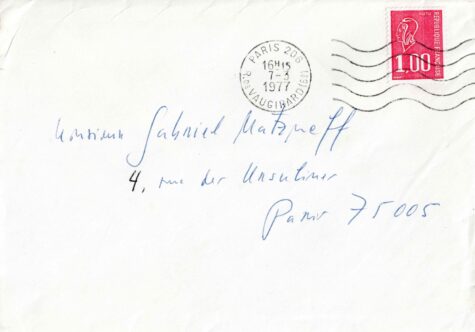 PARIS 206
16H15
7-3
1977
R. DE VAUGIRARD (6E)
REPUBLIQUE FRANÇAISE
1,00
Monsieur Gabriel Matzneff
4, rue des Ursulines
Paris 75005